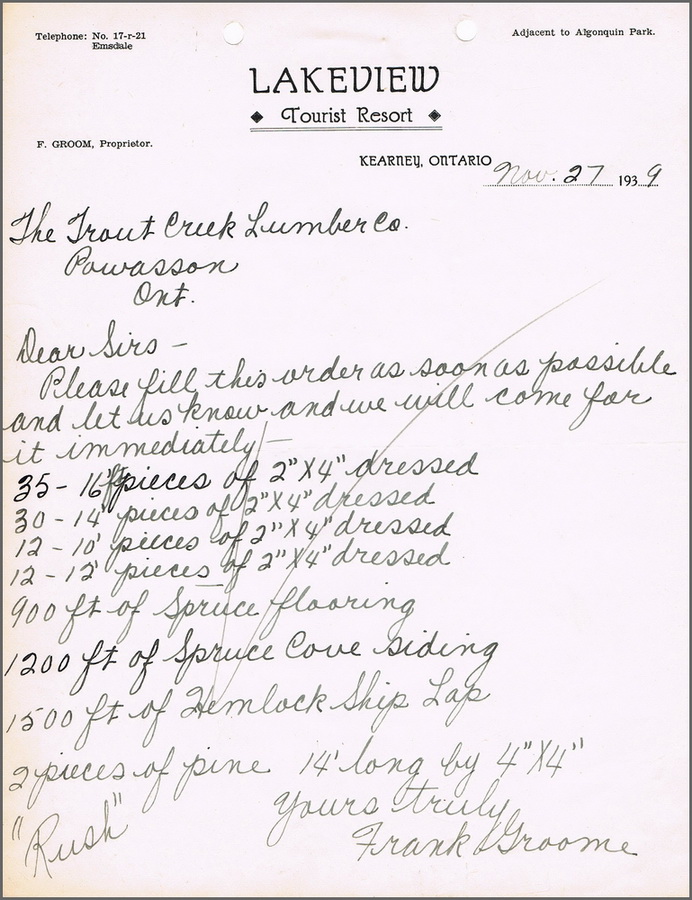 Telephone: No. 17-r-21
Emsdale
Adjacent to Algonquin Park.
LAKEVIEW
Tourist Resort
F. GROOM, Proprietor.
KEARNEY, ONTARIO Nov. 27 1939
The Trout Creek Lumber Co.
Powasson
Ont.
Dear Sirs –
Please fill this order as soon as possible
and let us know and we will come for
it immediately –
35 - 16 ft pieces of 2" X 4" dressed
30 - 14' pieces of 2" X 4" dressed
12 - 10' pieces of 2" X 4" dressed
12 - 12' pieces of 2" X 4" dressed
900 ft of Spruce flooring
1200 ft of Spruce Cove siding
1500 ft of Hemlock Ship Lap
2 pieces of pine 14' long by 4" X 4"
Yours truly
"Rush"
Frank Groome